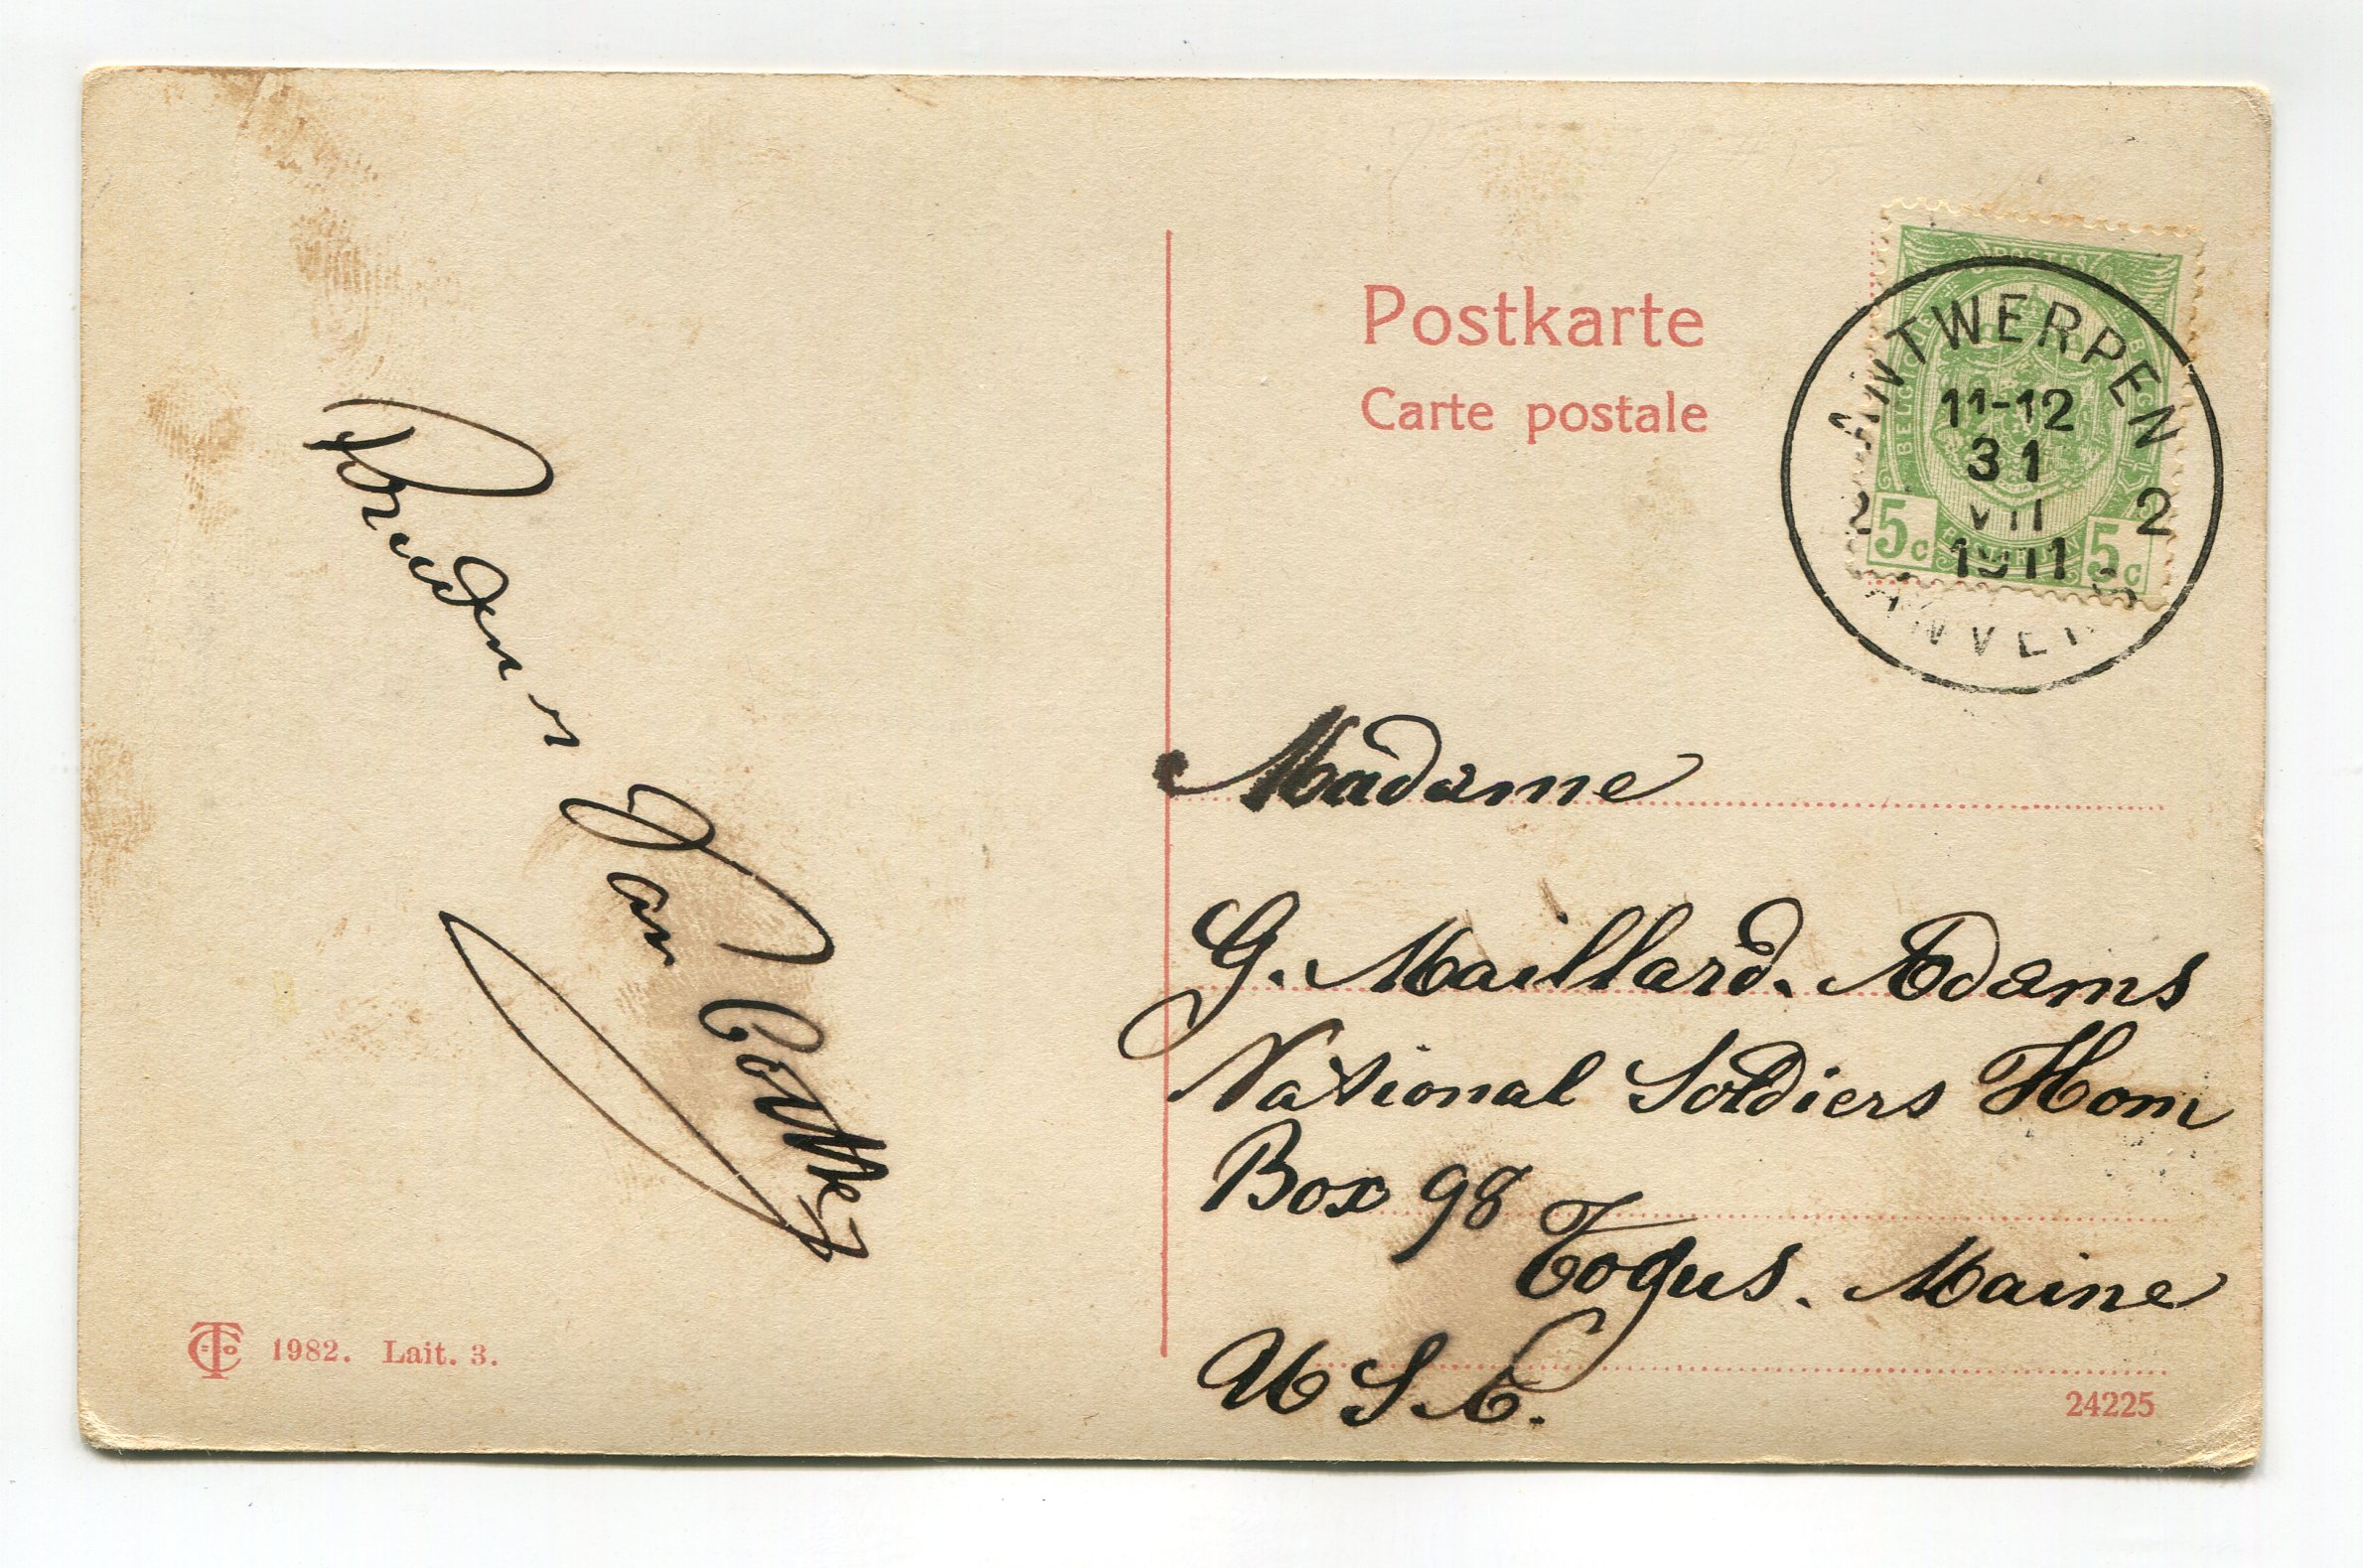 Postkarte
Carte postale
POSTES
BELGIQUE
5c 5c
ANTWERPEN
11-12
31
VII
1911
2 2
ANVERS
Madame
G. Maillard. Adams
National Soldiers Hom
Box 98
Togus. Maine
U S A.
Van
1982. Lait. 3.
24225